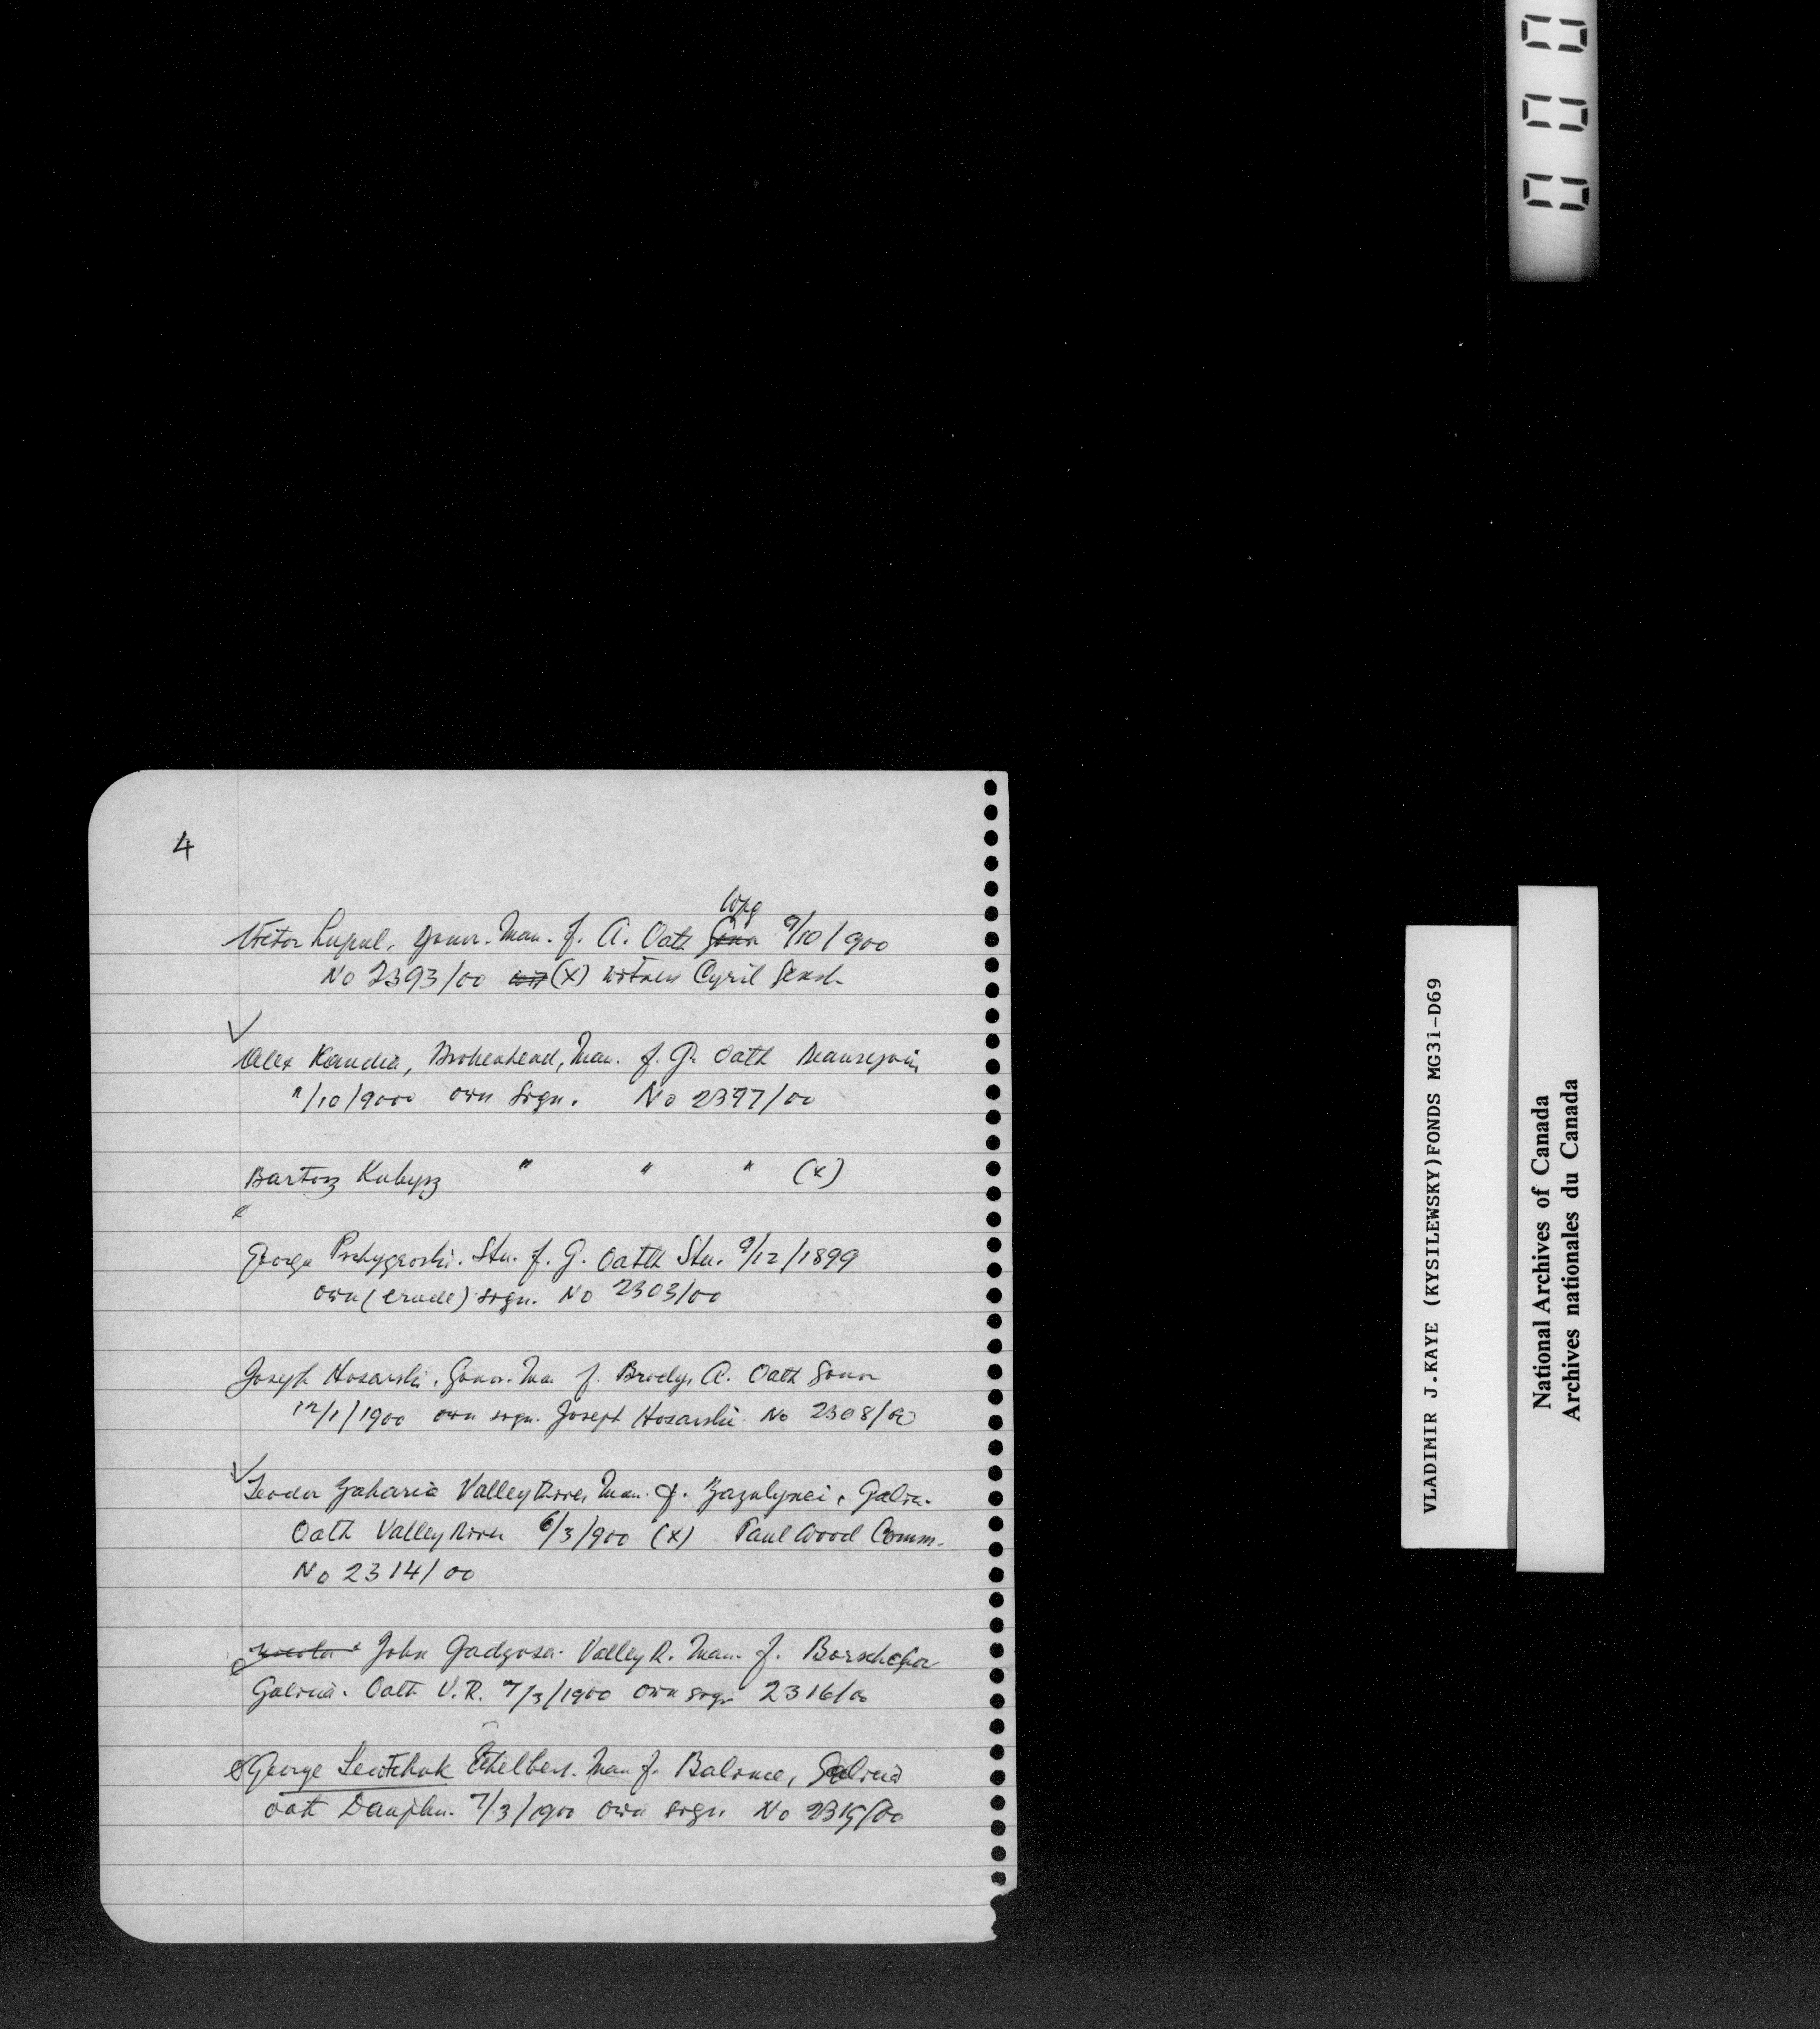 4
Wpg
Victor Lupul, Gonor. Man. f. A. Oath 9/10/900
No 2393/00 (x) witness Cyril Genik
Alex Kandia, Brokenhead, Man. f. G. Oath Beausejour
"/10/9000 own sign. No 2397/00
Bartosz " " " (x)
"
George Stu. f. G. Oath Stu. 9/12/1899
own (crude) sign. No 2303/00
Joseph Hosarski. Gonor. Ma. f. Brody, A. Oath Gonor
12/1/1900 own sign. Joseph Hosarski. No 2308/00
Teodor Zaharia Valley River, Man. f. Galic.
Oath Valley River 6/3/900 (x) Paul Wood Comm.
No 2314/00
John Valley R. Man. f.
Galicia. Oath V.R. 7/3/1900 own sign 2316/00
George Lewtchuk Ethelbert. Man f. Balince, Galicia
oath Dauphin. 7/3/1900 own sign No 2315/00
VLADIMIR J.KAYE (KYSILEWSKY)FONDS MG31-D69
National Archives of Canada
Archives nationales du Canada